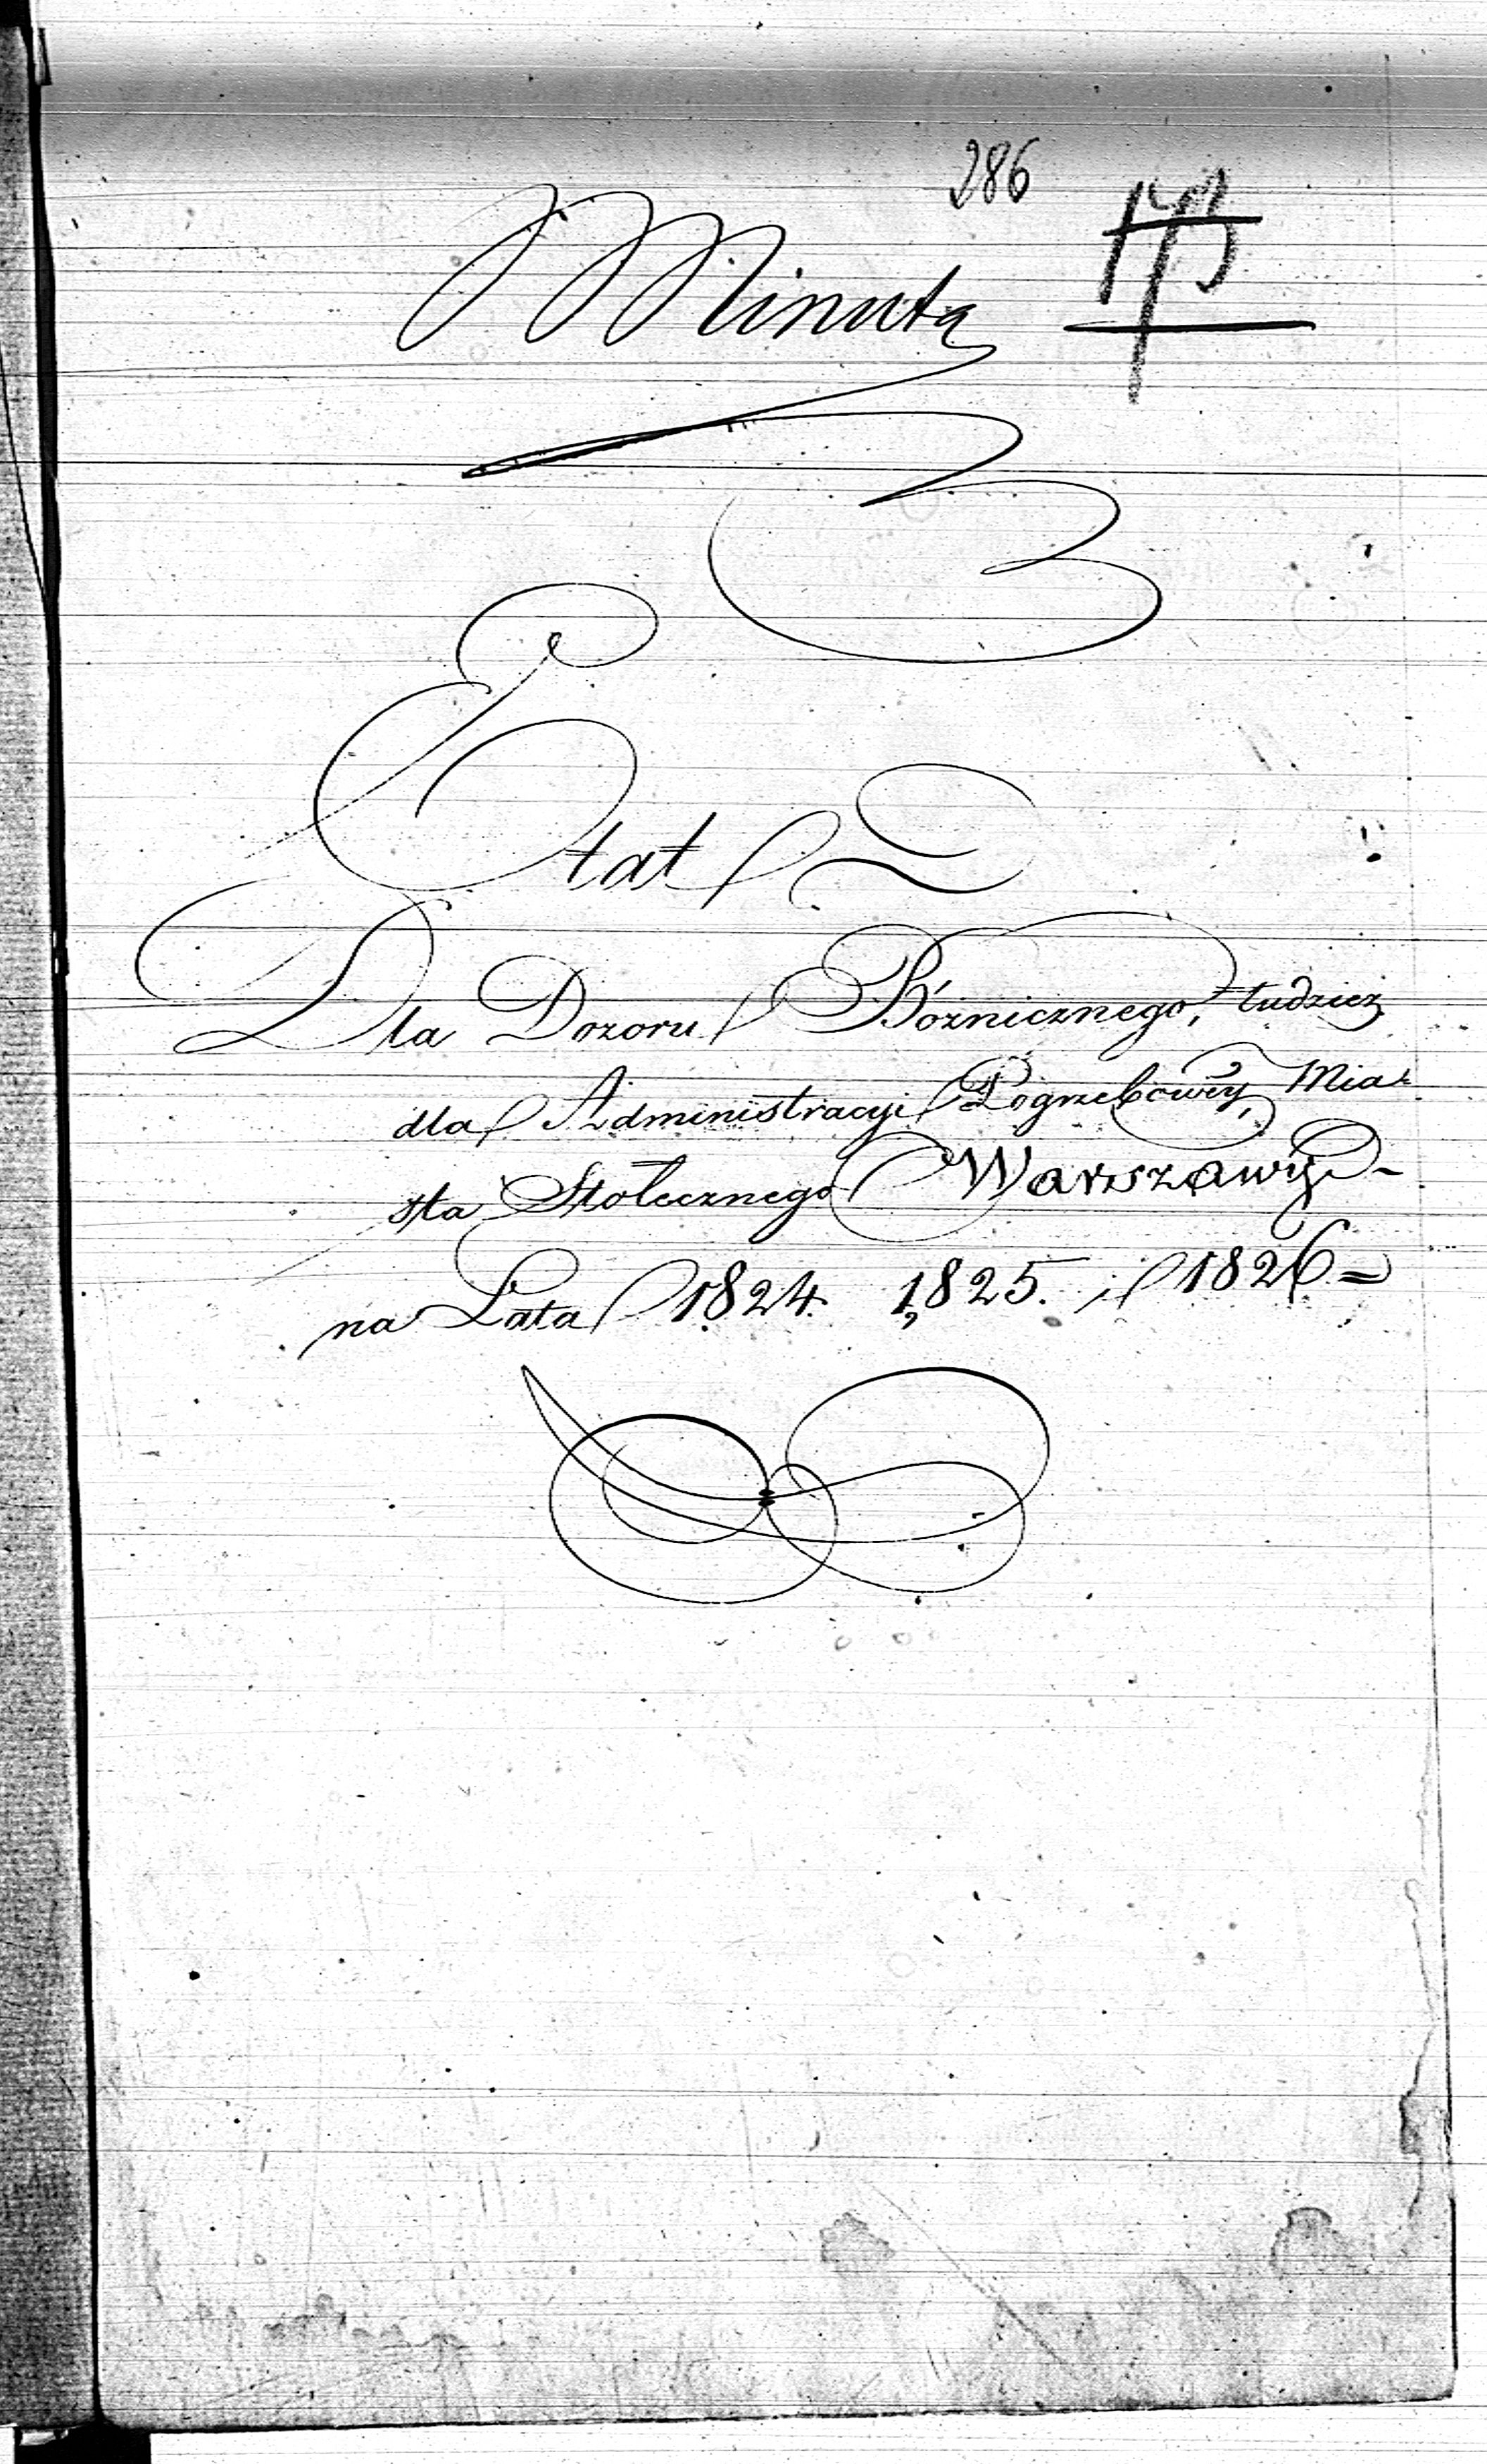 286
Minuta
Etat
Dla Dozoru Bóżnicznego, tudzież
dla Administracyi Pogrzebowéy, Mia-
sta Stołecznego Warszawy
na Lata 1824. 1825. i 1826 =